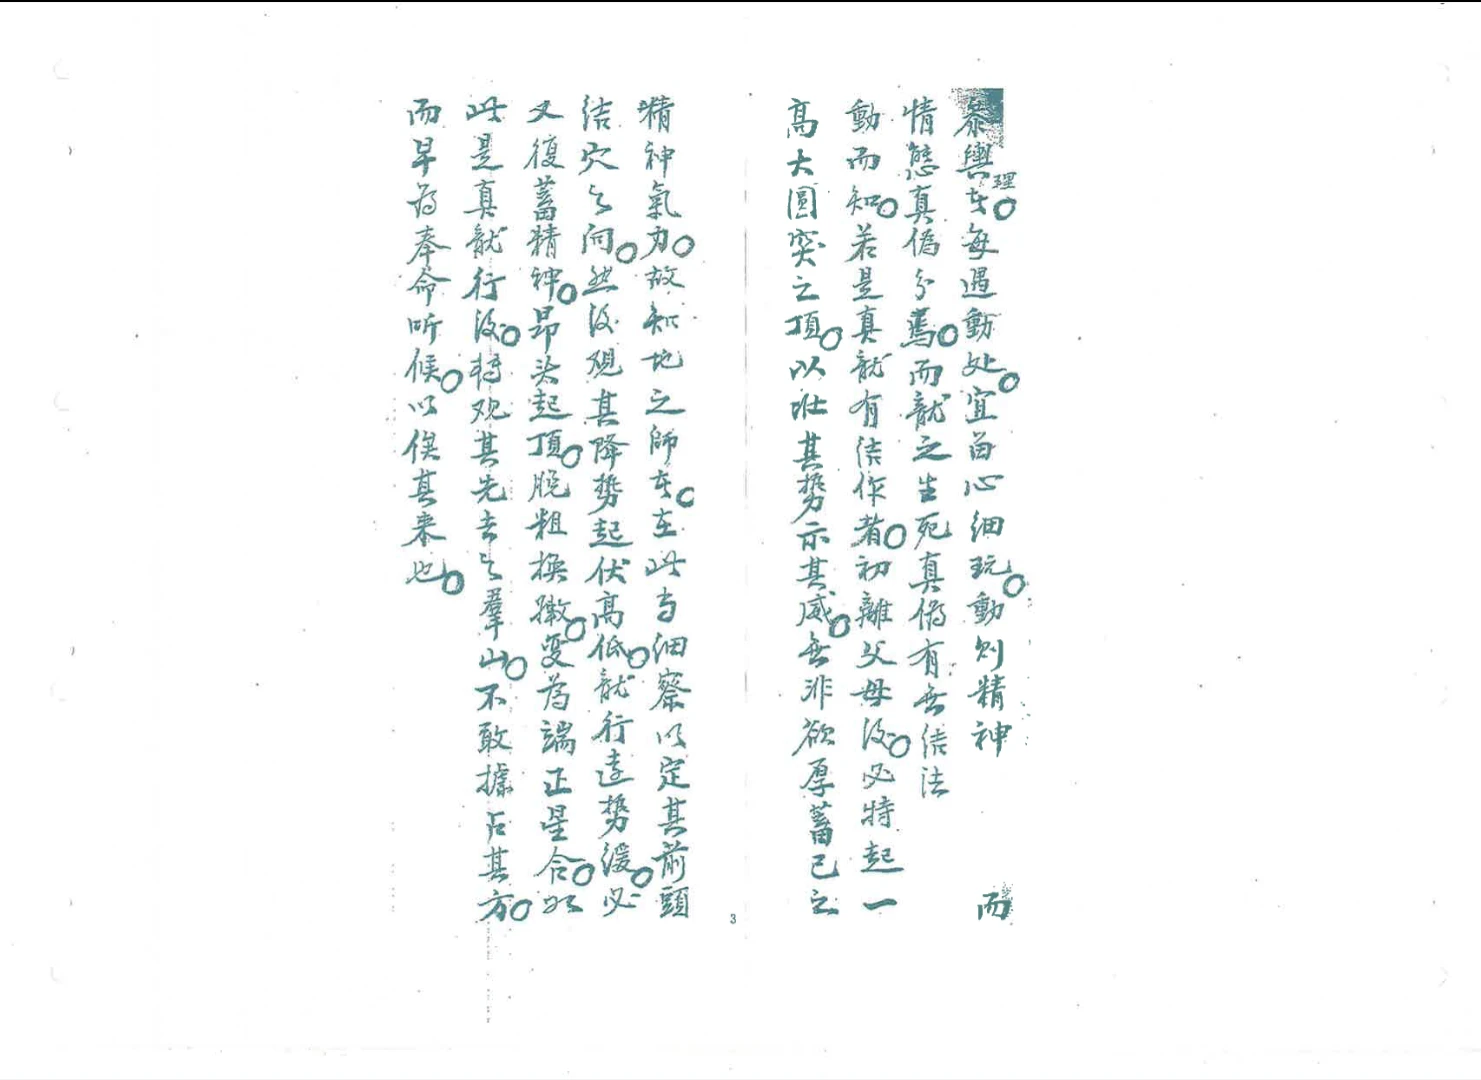 參輿理者。每遇動处。宜畄心細玩。動則精神 而
情態真偽分焉。而龍之生死真偽有無结法
動而知。若是真龍有结作者。初離父母後。必特起一
高大圓突之頂。以壯其勢示其威。無非欲厚蓄己之
精神氣力。故知地之師者。在此当細察以定其前頭
结穴之向。然後覌其降势起伏高低。龍行逺势緩。必
又復蓄精神。昂头起頂。脱粗换嫩。变为端正星合。如
此是真龍行後。轉观其先去之羣山。不敢據占其方。
而早为奉命听候。以俟其来也。
3